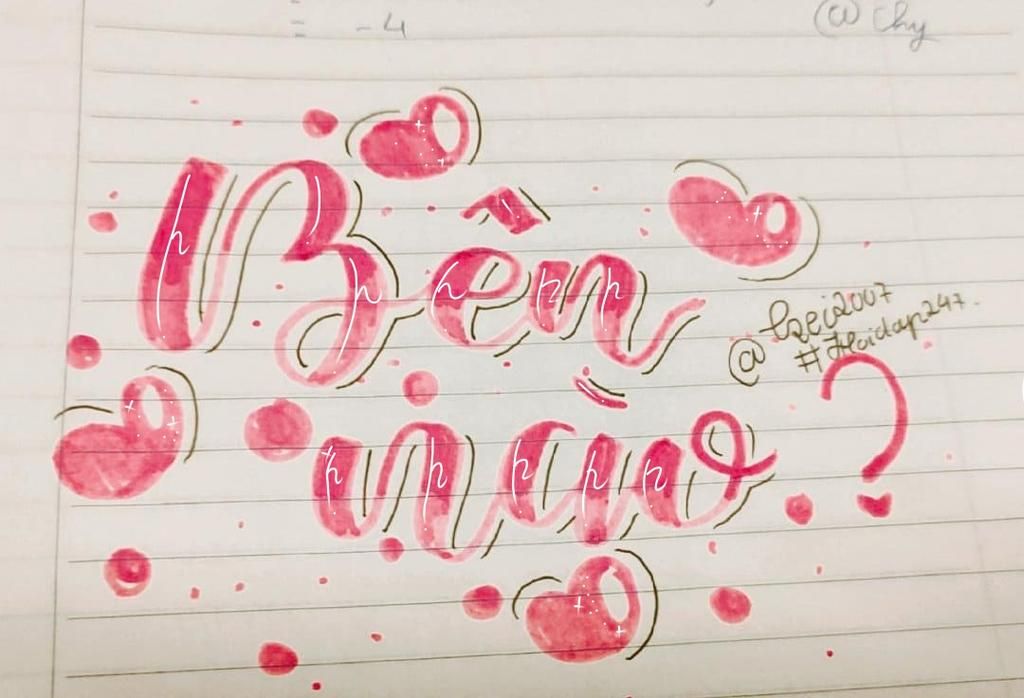 = -4
@ Chy
Bên
nào?
@tzei2007
#Hoidap247.